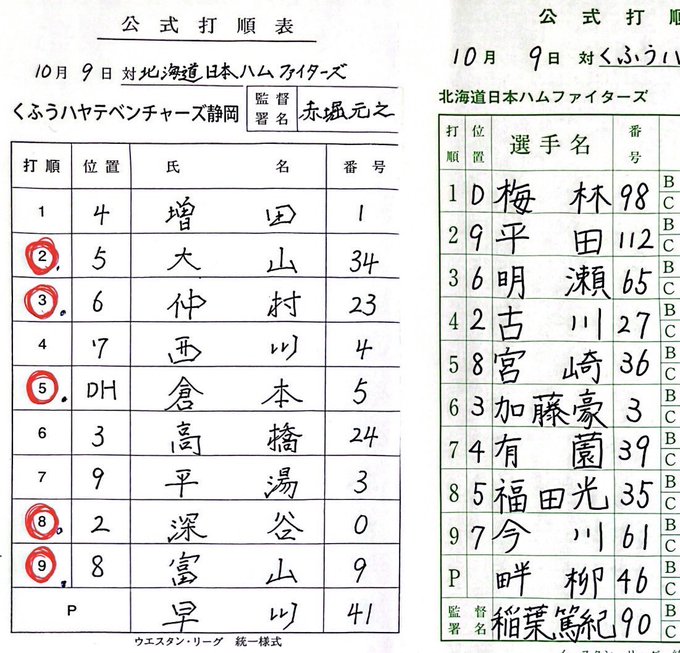 公式打順表
10月9日対北海道日本ハムファイターズ
くふうハヤテベンチャーズ静岡 監督署名 赤堀元之
打順 位置 氏名 番号
1 4 増田 1
2 5 大山 34
3 6 仲村 23
4 7 西川 4
5 DH 倉本 5
6 3 高橋 24
7 9 平湯 3
8 2 深谷 0
9 8 富山 9
P 早川 41
ウエスタン・リーグ 統一様式
公式打順
10月9日対くふうハ
北海道日本ハムファイターズ
打順 位置 選手名 番号
1 D 梅林 98 B C
2 9 平田 112 B C
3 6 明瀬 65 B C
4 2 古川 27 B C
5 8 宮崎 36 B C
6 3 加藤豪 3 B C
7 4 有薗 39 B C
8 5 福田光 35 B C
9 7 今川 61 B C
P 畔柳 46 B C
監督署名 稲葉篤紀 90 B C